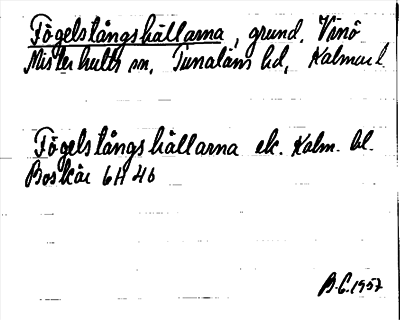 Fögelstångshällarna, grund, Vinö
Misterhults sn, Tunaläns hd, Kalmar l.
Fögelstångshällarna ek. Kalm. bl.
Boskär 6H 4b
B.C. 1957